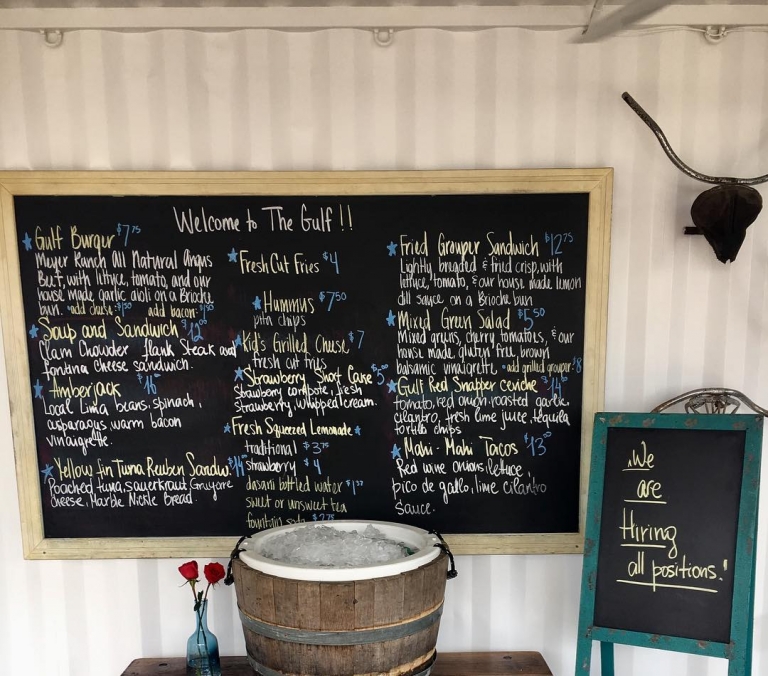 Welcome to The Gulf!!
Gulf Burger $7.75
Meyer Ranch All Natural Angus
Beef, with lettuce, tomato, and our
house made garlic aioli on a Brioche
bun. add cheese add bacon
Soup and Sandwich $12
Clam Chowder flank Steak and
fontina cheese sandwich.
Amberjack $16
Local Lima beans, spinach,
asparagus warm bacon
vinaigrette.
Yellow fin Tuna Reuben Sandw
Poached tuna, sauerkraut Gruyere
Cheese, Marble Nickle Bread.
Fresh Cut Fries $4
Hummus $7.50
pita chips
Kid's Grilled Cheese $7
fresh cut fries
Strawberry Short Cake
strawberry compote, fresh
strawberry, whipped cream.
Fresh Squeezed Lemonade
traditional $3.75
strawberry $4
dasani bottled water
sweet or unsweet tea
fountain soda
Fried Grouper Sandwich $12.75
Lightly breaded & fried crisp, with
lettuce, tomato, & our house made lemon
dill sauce on a Brioche bun
Mixed Green Salad $5.50
Mixed greens, cherry tomatoes, & our
house made gluten free brown
balsamic vinaigrette. add grilled grouper $8
Gulf Red Snapper ceviche $14
tomato, red onion, roasted garlic,
cilantro, fresh lime juice, tequila
tortilla chips
Mahi-Mahi Tacos $13
Red wine onions, lettuce,
pico de gallo, lime cilantro
Sauce.
We
are
Hiring
all positions!